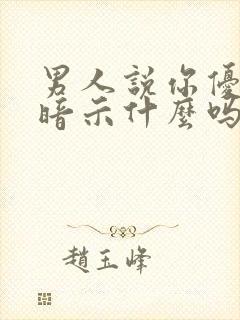 男人說你優
暗示什麼嗎
趙玉峰